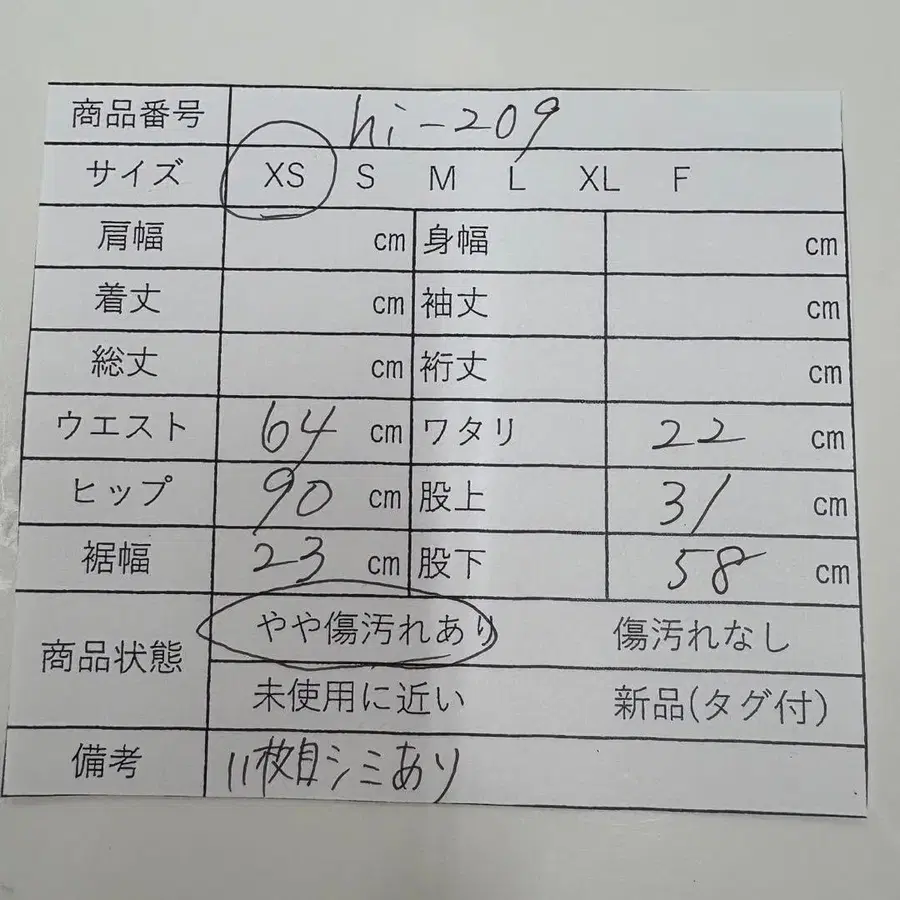 商品番号 hi-209
サイズ XS S M L XL F
肩幅 cm 身幅 cm
着丈 cm 袖丈 cm
総丈 cm 裄丈 cm
ウエスト 64 cm ワタリ 22 cm
ヒップ 90 cm 股上 31 cm
裾幅 23 cm 股下 58 cm
商品状態 やや傷汚れあり 傷汚れなし
未使用に近い 新品(タグ付)
備考 11枚目シミあり